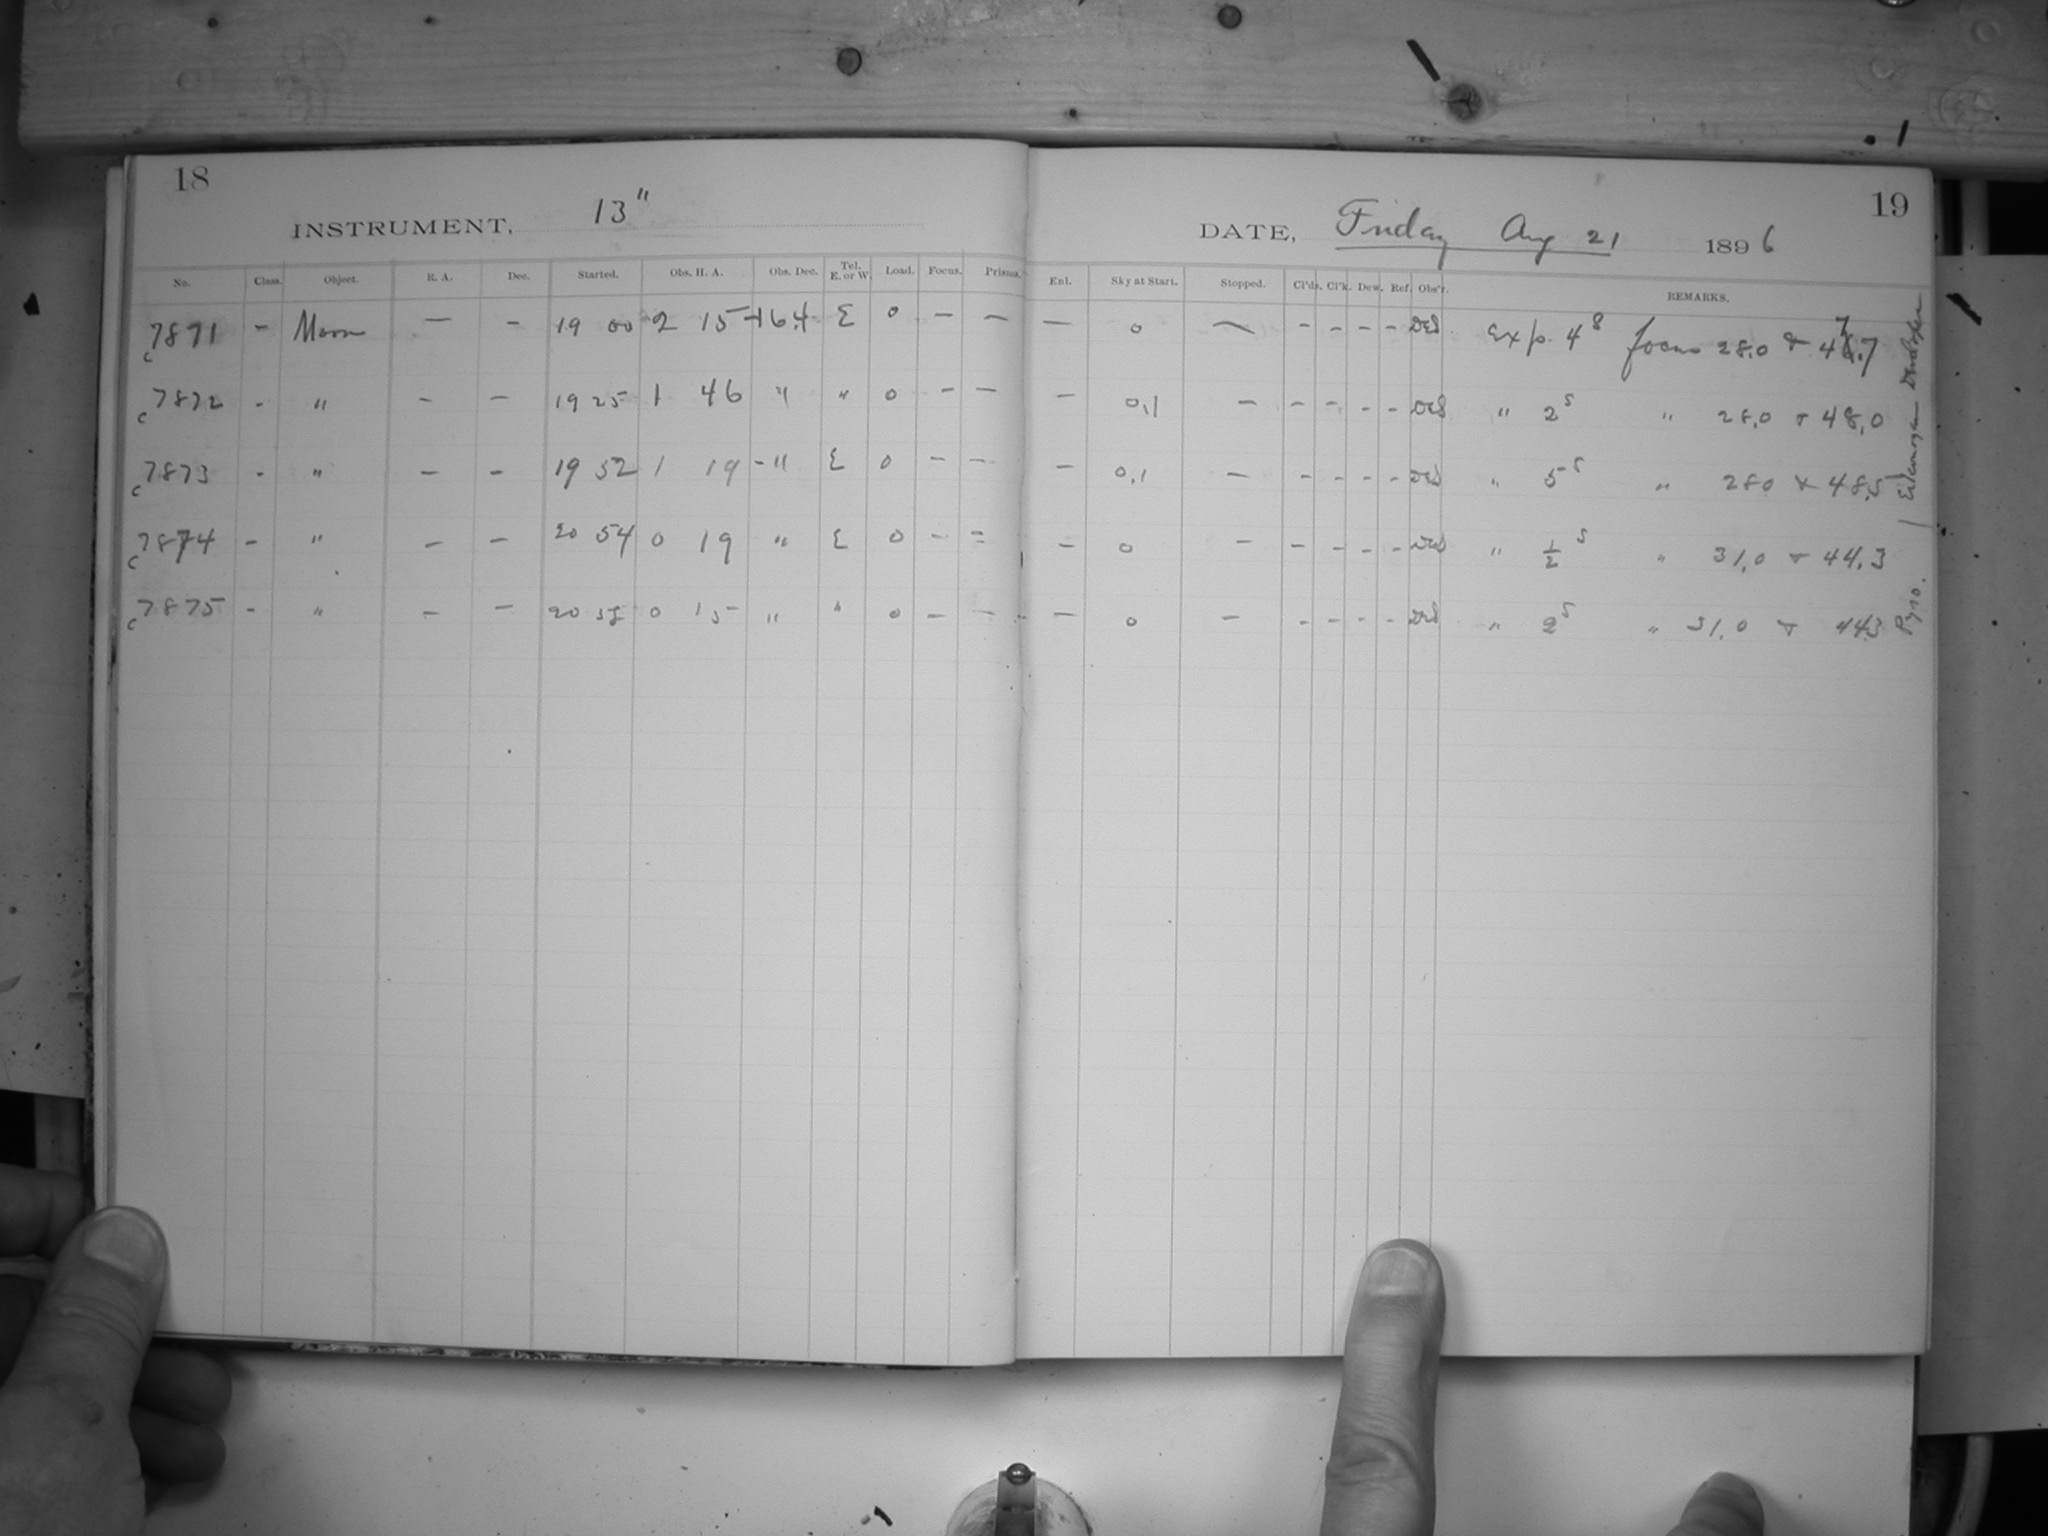 18
INSTRUMENT, 13"
No. Class. Object. R. A. Dec. Started. Obs. H. A. Obs. Dec. Tel. E. or W. Load. Focus. Prisms.
c7871 – Moon — – 19 00 2 15 –16.4 E 0 – –
c7872 - " - – 19 25 1 46 " " 0 – –
c7873 - " – - 19 52 1 19 -" E 0 – –
c7874 – " – – 20 54 0 19 " E 0 - =
c7875 - " – – 20 58 0 15 " " 0 – –
19
DATE, Friday Aug 21 1896
Enl. Sky at Start. Stopped. Cl'ds. Cl'k. Dew. Ref. Obs'r. REMARKS.
— 0 — - - - - Exp. 4s focus 28.0 & 47.7
– 0,1 – – - - - " 2s " 28.0 & 48.0
– 0,1 – - - - - " 5s " 28.0 & 48.5
– 0 – – - - - " 1/2 s " 31.0 & 44.3
— 0 – - - - - " 2s " 31.0 & 44.3
Eikonogen Developer
Pyro.